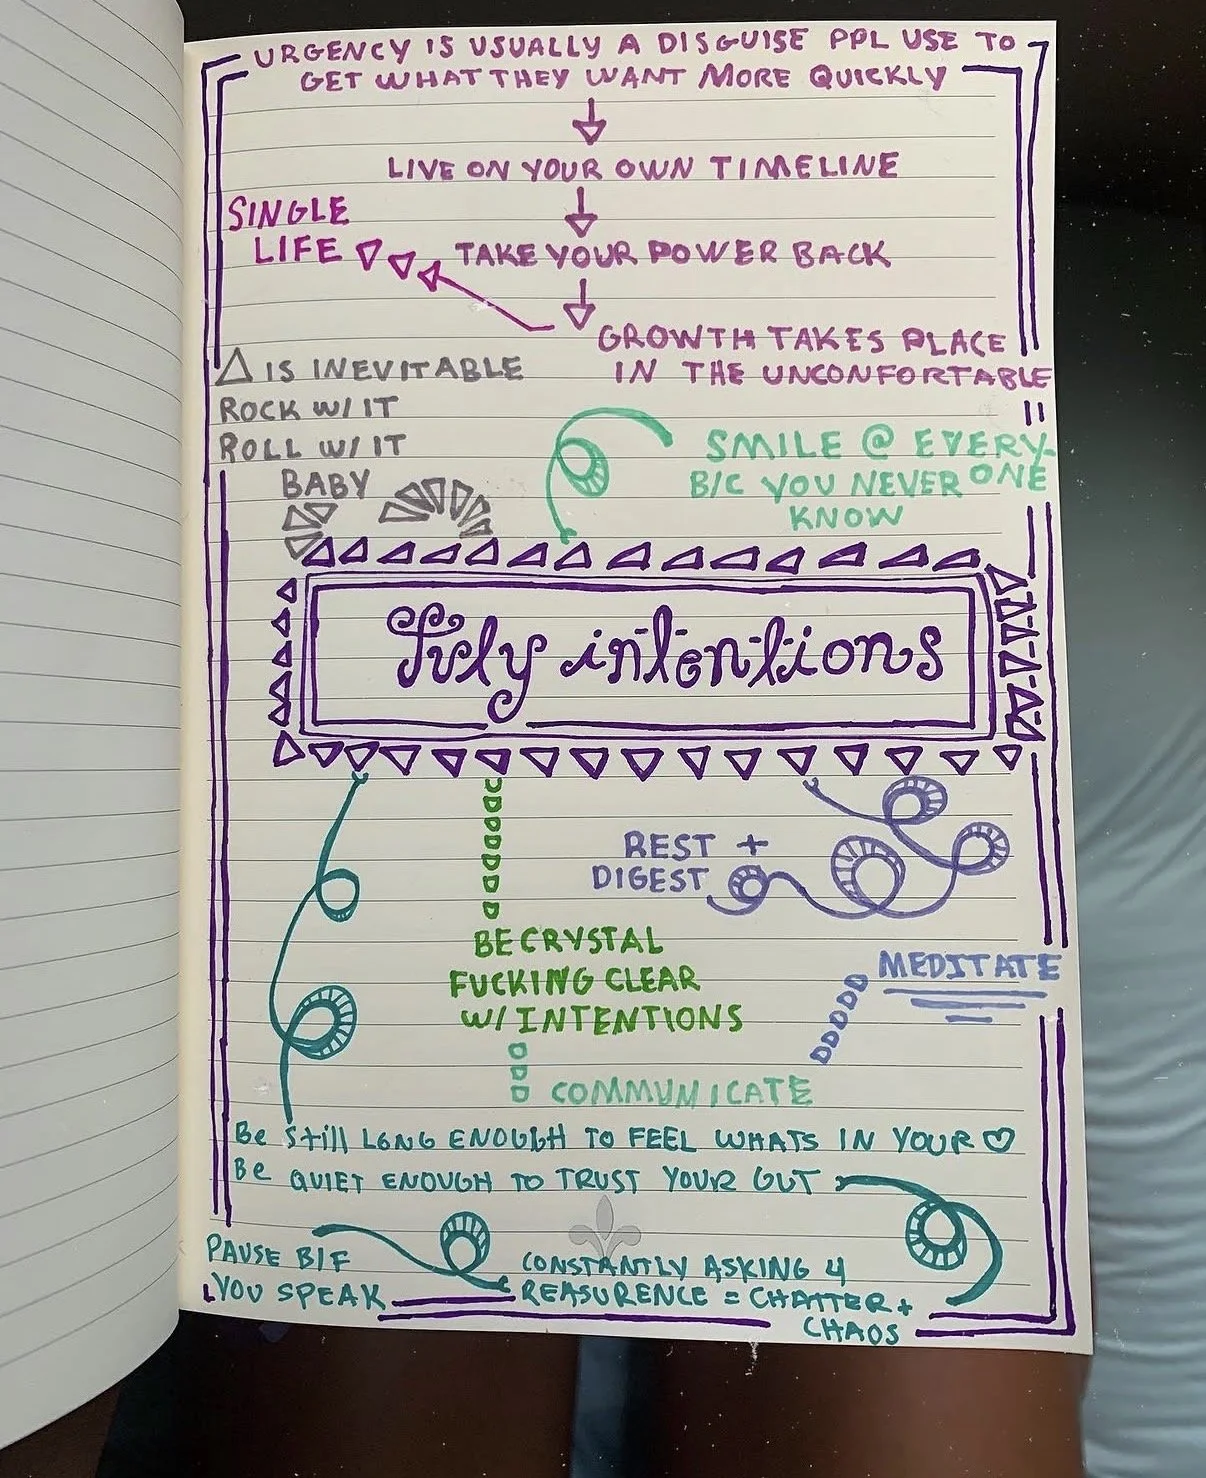 URGENCY IS USUALLY A DISGUISE PPL USE TO
GET WHAT THEY WANT MORE QUICKLY
LIVE ON YOUR OWN TIMELINE
SINGLE
LIFE
TAKE YOUR POWER BACK
GROWTH TAKES PLACE
IN THE UNCONFORTABLE
Δ IS INEVITABLE
ROCK W/ IT
ROLL W/ IT
BABY
SMILE @ EVERY-
ONE
B/C YOU NEVER
KNOW
July intentions
REST +
DIGEST
BE CRYSTAL
FUCKING CLEAR
W/ INTENTIONS
MEDITATE
COMMUNICATE
Be Still LONG ENOUGH TO FEEL WHATS IN YOUR ♡
Be QUIET ENOUGH TO TRUST YOUR GUT
PAUSE B/F
YOU SPEAK
CONSTANTLY ASKING 4
REASURENCE = CHATTER +
CHAOS